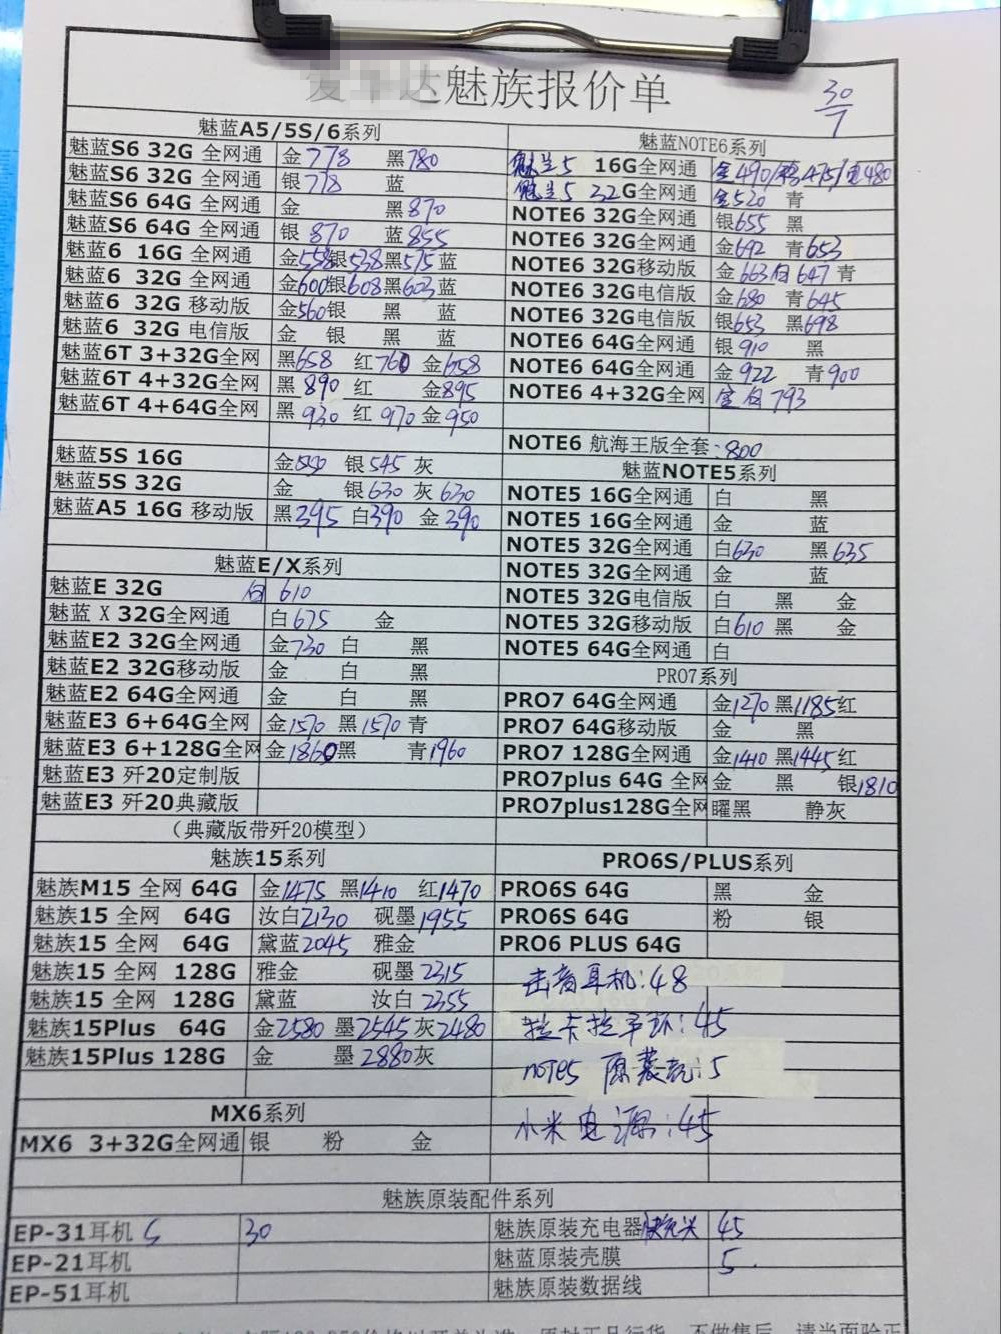 魅族报价单
30/7
魅蓝A5/5S/6系列
魅蓝S6 32G 全网通 金778 黑780
魅蓝S6 32G 全网通 银778 蓝
魅蓝S6 64G 全网通 金 黑870
魅蓝S6 64G 全网通 银870 蓝855
魅蓝6 16G 全网通 金558银538黑575蓝
魅蓝6 32G 全网通 金600银608黑603蓝
魅蓝6 32G 移动版 金560银 黑 蓝
魅蓝6 32G 电信版 金 银 黑 蓝
魅蓝6T 3+32G全网 黑658 红760 金658
魅蓝6T 4+32G全网 黑890 红 金895
魅蓝6T 4+64G全网 黑930 红970 金950
魅蓝5S 16G 金 银545 灰
魅蓝5S 32G 金 银630 灰630
魅蓝A5 16G 移动版 黑395 白390 金390
魅蓝E/X系列
魅蓝E 32G 白 610
魅蓝 X 32G全网通 白675 金
魅蓝E2 32G全网通 金730 白 黑
魅蓝E2 32G移动版 金 白 黑
魅蓝E2 64G全网通 金 白 黑
魅蓝E3 6+64G全网 金1570 黑1570 青
魅蓝E3 6+128G全网 金1860黑 青1960
魅蓝E3 歼20定制版
魅蓝E3 歼20典藏版
（典藏版带歼20模型）
魅族15系列
魅族M15 全网 64G 金1475 黑1410 红1470
魅族15 全网 64G 汝白2130 砚墨1955
魅族15 全网 64G 黛蓝2045 雅金
魅族15 全网 128G 雅金 砚墨2315
魅族15 全网 128G 黛蓝 汝白2355
魅族15Plus 64G 金2580 墨2545灰2480
魅族15Plus 128G 金 墨2880灰
MX6系列
MX6 3+32G全网通 银 粉 金
魅蓝NOTE6系列
魅兰5 16G全网通 金490/ 475/ 480
魅兰5 32G全网通 金520 青
NOTE6 32G全网通 银655 黑
NOTE6 32G全网通 金692 青653
NOTE6 32G移动版 金663白647青
NOTE6 32G电信版 金680 青645
NOTE6 32G电信版 银653 黑698
NOTE6 64G全网通 银910 黑
NOTE6 64G全网通 金922 青900
NOTE6 4+32G全网 793
NOTE6 航海王版全套:800
魅蓝NOTE5系列
NOTE5 16G全网通 白 黑
NOTE5 16G全网通 金 蓝
NOTE5 32G全网通 白630 黑635
NOTE5 32G全网通 金 蓝
NOTE5 32G电信版 白 黑 金
NOTE5 32G移动版 白610 黑 金
NOTE5 64G全网通 白
PRO7系列
PRO7 64G全网通 金1270 黑1185红
PRO7 64G移动版 金 黑
PRO7 128G全网通 金1410 黑1445红
PRO7plus 64G 全网 金 黑 银1810
PRO7plus128G全网 曜黑 静灰
PRO6S/PLUS系列
PRO6S 64G 黑 金
PRO6S 64G 粉 银
PRO6 PLUS 64G
击音耳机:48
拉卡拉手环:45
note5 原装壳:5
小米电源:45
魅族原装配件系列
EP-31耳机 30 魅族原装充电器 45
EP-21耳机 魅蓝原装壳膜 5
EP-51耳机 魅族原装数据线